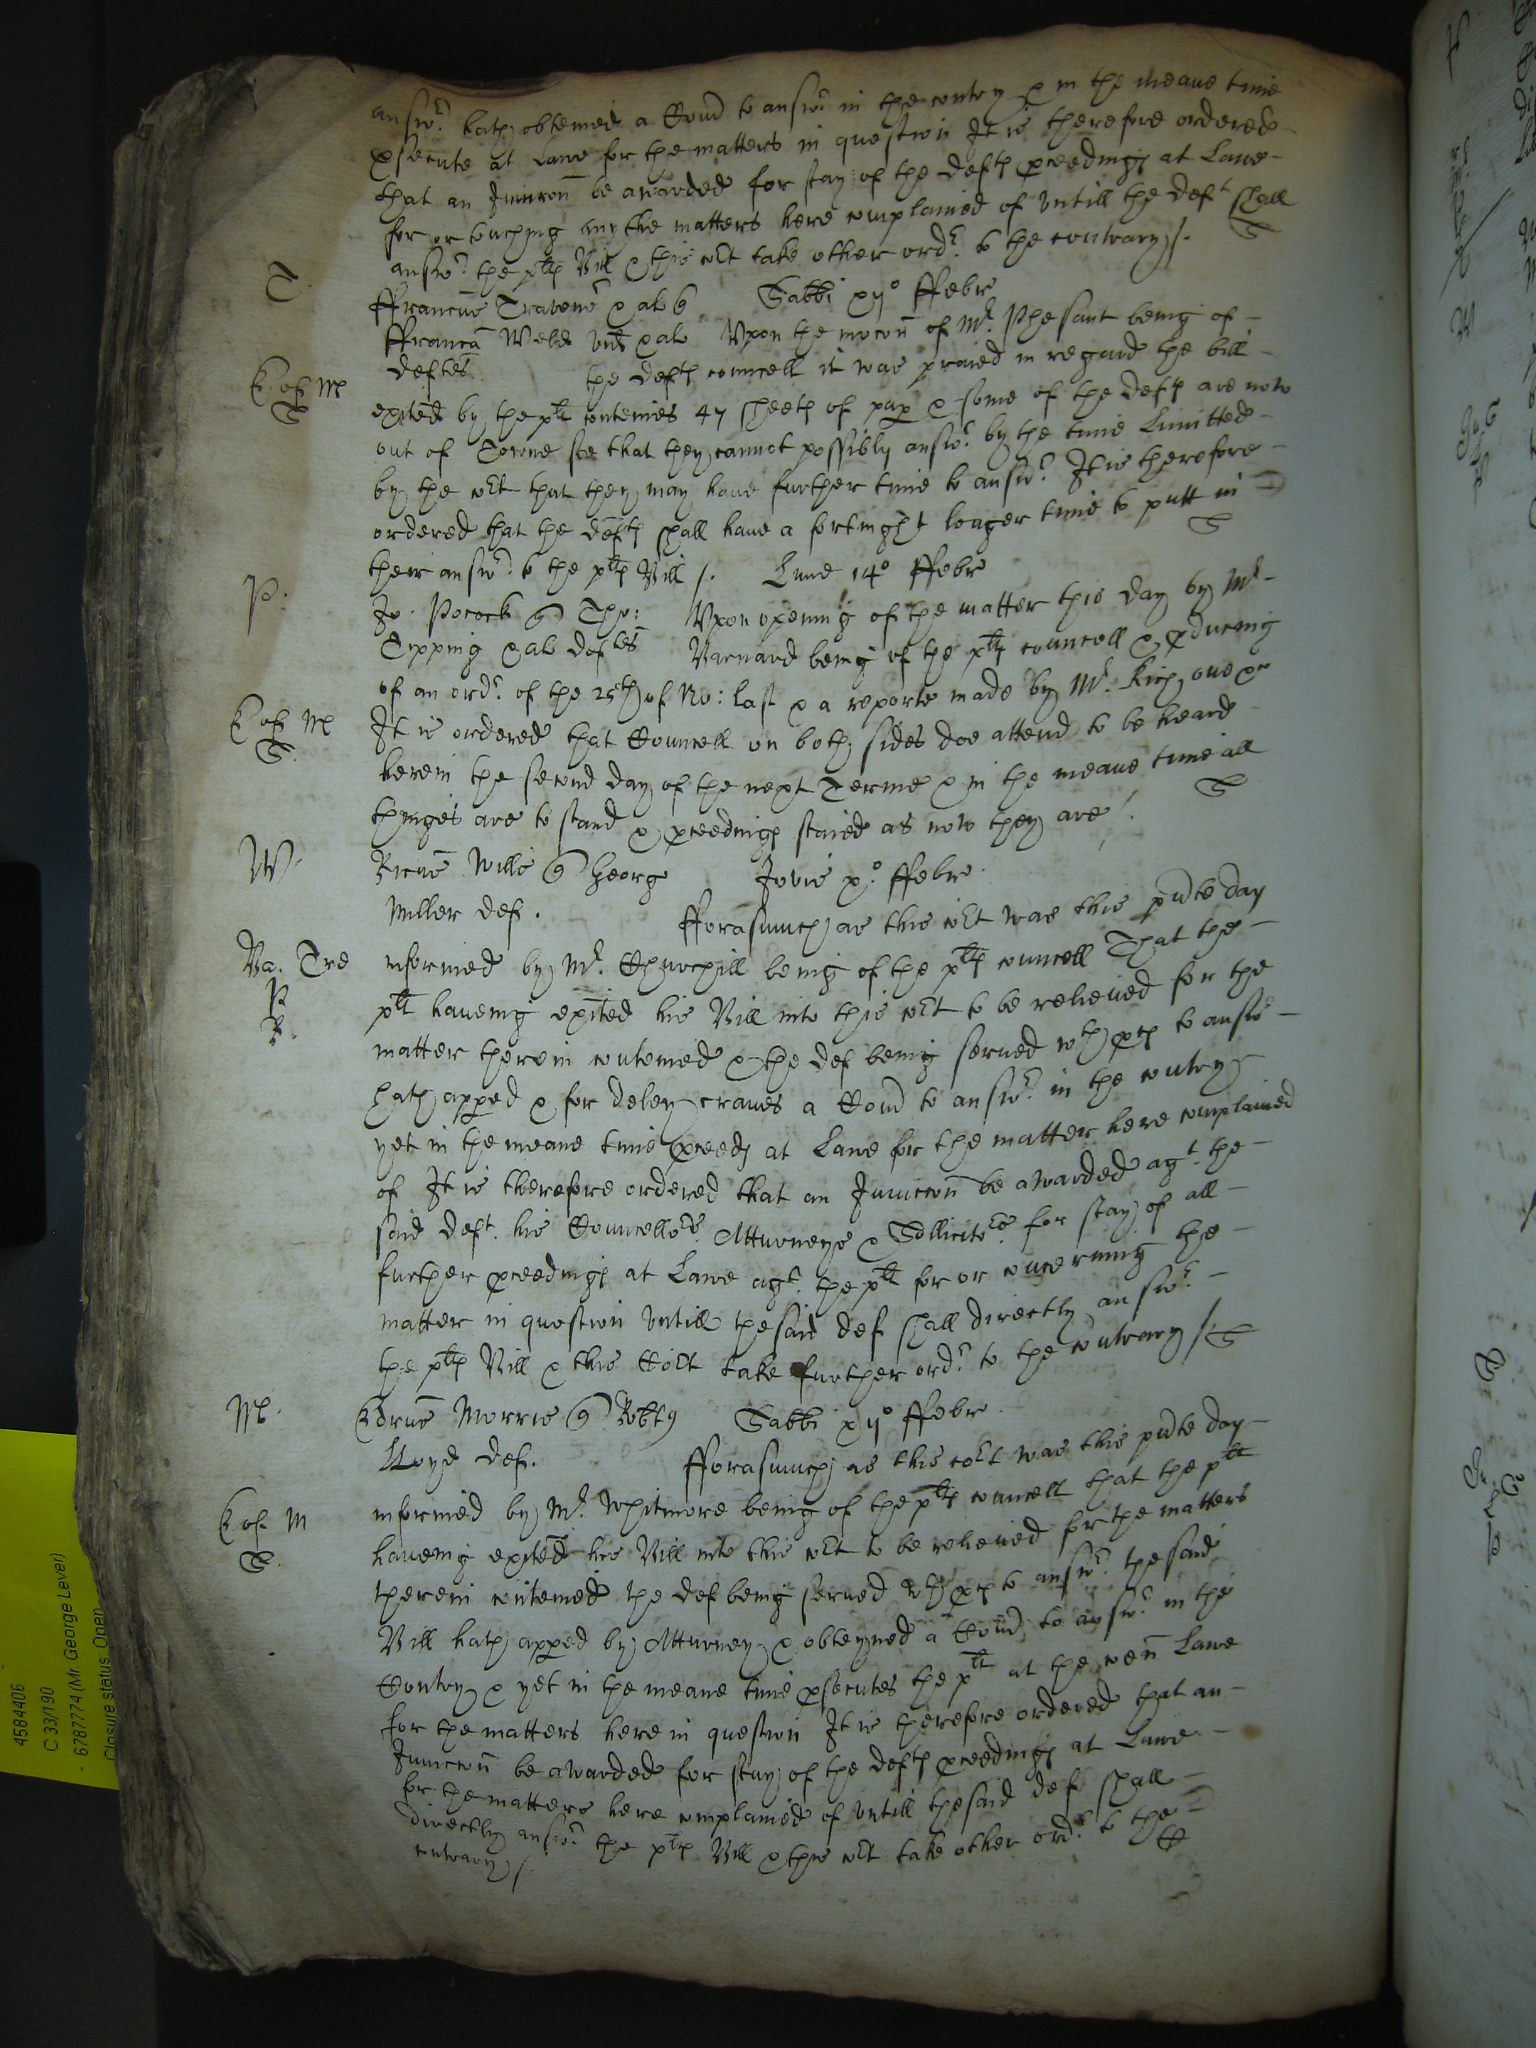 answ:r hath obteined a Com̄ to answ:r in the contry & in the meane time
psecute at Lawe for the matters in question It is therefore ordered
that an Iniunccōn be awarded for stay of the defts pceedings at Lawe
for or touching any the matters here complained of vntill the deft shall
answ:r the plts Bill & this Co:rt take other ord:r to the contrary /.
T.
Sabbi xij° ffebr
ffrancisc Weld vid & al
Vpon the mocōn of M:r Phesant being of
deftes
the defts councell it was praied in regard the bill
exīted by the plt conteines 47 sheets of pap & some of the defts are now
out of Towne soe that they cannot possibly answ:r by the time Limitted
by the co:rt that they may haue further time to answ:r It is therefore
ordered that the defts shall haue a fortnight longer time to putt in
their answ:r to the plts Bill /.
Lune 14° ffebr
P.
Jo: Pocock q Tho:
Vpon opening of the matter this day by M:r
Tipping & al deftes
Barnard being of the plts councell & pduceing
of an ord:r of the 25th of No: last & a reporte made by M:r Rich one &c
It is ordered that Councell on both sides doe attend to be heard
herein the second day of the next Terme & in the meane time all
thinges are to stand & pceedings staied as now they are /
W.
Ricus Wills q George
Jovis x° ffebr.
Miller def.
fforasmuch as this co:rt was this pn̄te day
Va. Tre
informed by M:r Churchill being of the plts councell That the
P
R.
plt haueing exīted his Bill into this co:rt to be releiued for the
matter therein conteined & the def being serued wth pces to answ:r
hath apped & for deley craues a Com̄ to answ:r in the contry
yet in the meane time pceeds at Lawe for the matter here complained
of It is therefore ordered that an Iniunccōn be awarded ag:t the
said deft. his Councello:rs Atturneys & Sollicito:rs for stay of all
further pceedings at Lawe ag:t the plt for or concerning the
matter in question vntill the said def shall directly answ:r
the plts Bill & this Co:rt take further ord:r to the contrary /.
M.
Edrus Morris q Robtu
Sabbi xij° ffebr.
Lloyd def.
fforasmuch as this co:rt was this pn̄te day
informed by M:r Whitmore being of the plts councell that the plt
haueing exīted his Bill into this co:rt to be releiued for the matters
therein conteined the def being serued wth pces to answ:r the said
Bill hath apped by Atturney & obteyned a Com̄ to answ:r in the
Contry & yet in the meane time psecutes the plt at the com̄ Lawe
for the matters here in question It is therefore ordered that an
Iniunccōn be awarded for stay of the defts pceedings at Lawe
for the matters here complained of vntill the said def shall
directly answ:r the plts Bill & this co:rt take other ord:r to the
contrary /.
4584406
C 33/190
6787774 (Mr. George Lever)
Closure status Open